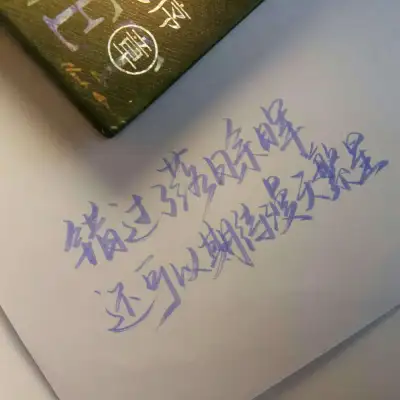 序
章
错过了落日余晖
还可以期待漫天繁星